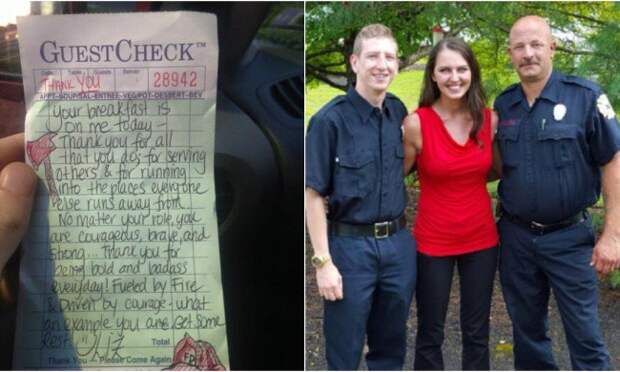 GUESTCHECK™
Date Table Guests Server
THANK YOU
28942
APPT-SOUP/SAL-ENTREE-VEG/POT-DESSERT-BEV
Your breakfast is
on me today -
Thank you for all
that you do; for serving
others & for running
into the places everyone
else runs away from.
No matter your role, you
are courageous, brave, and
strong... Thank you for
being bold and badass
everyday! Fueled by Fire
& Driven by courage - what
an example you are. Get Some
Rest
Total
Thank You - Please Come Again
FD